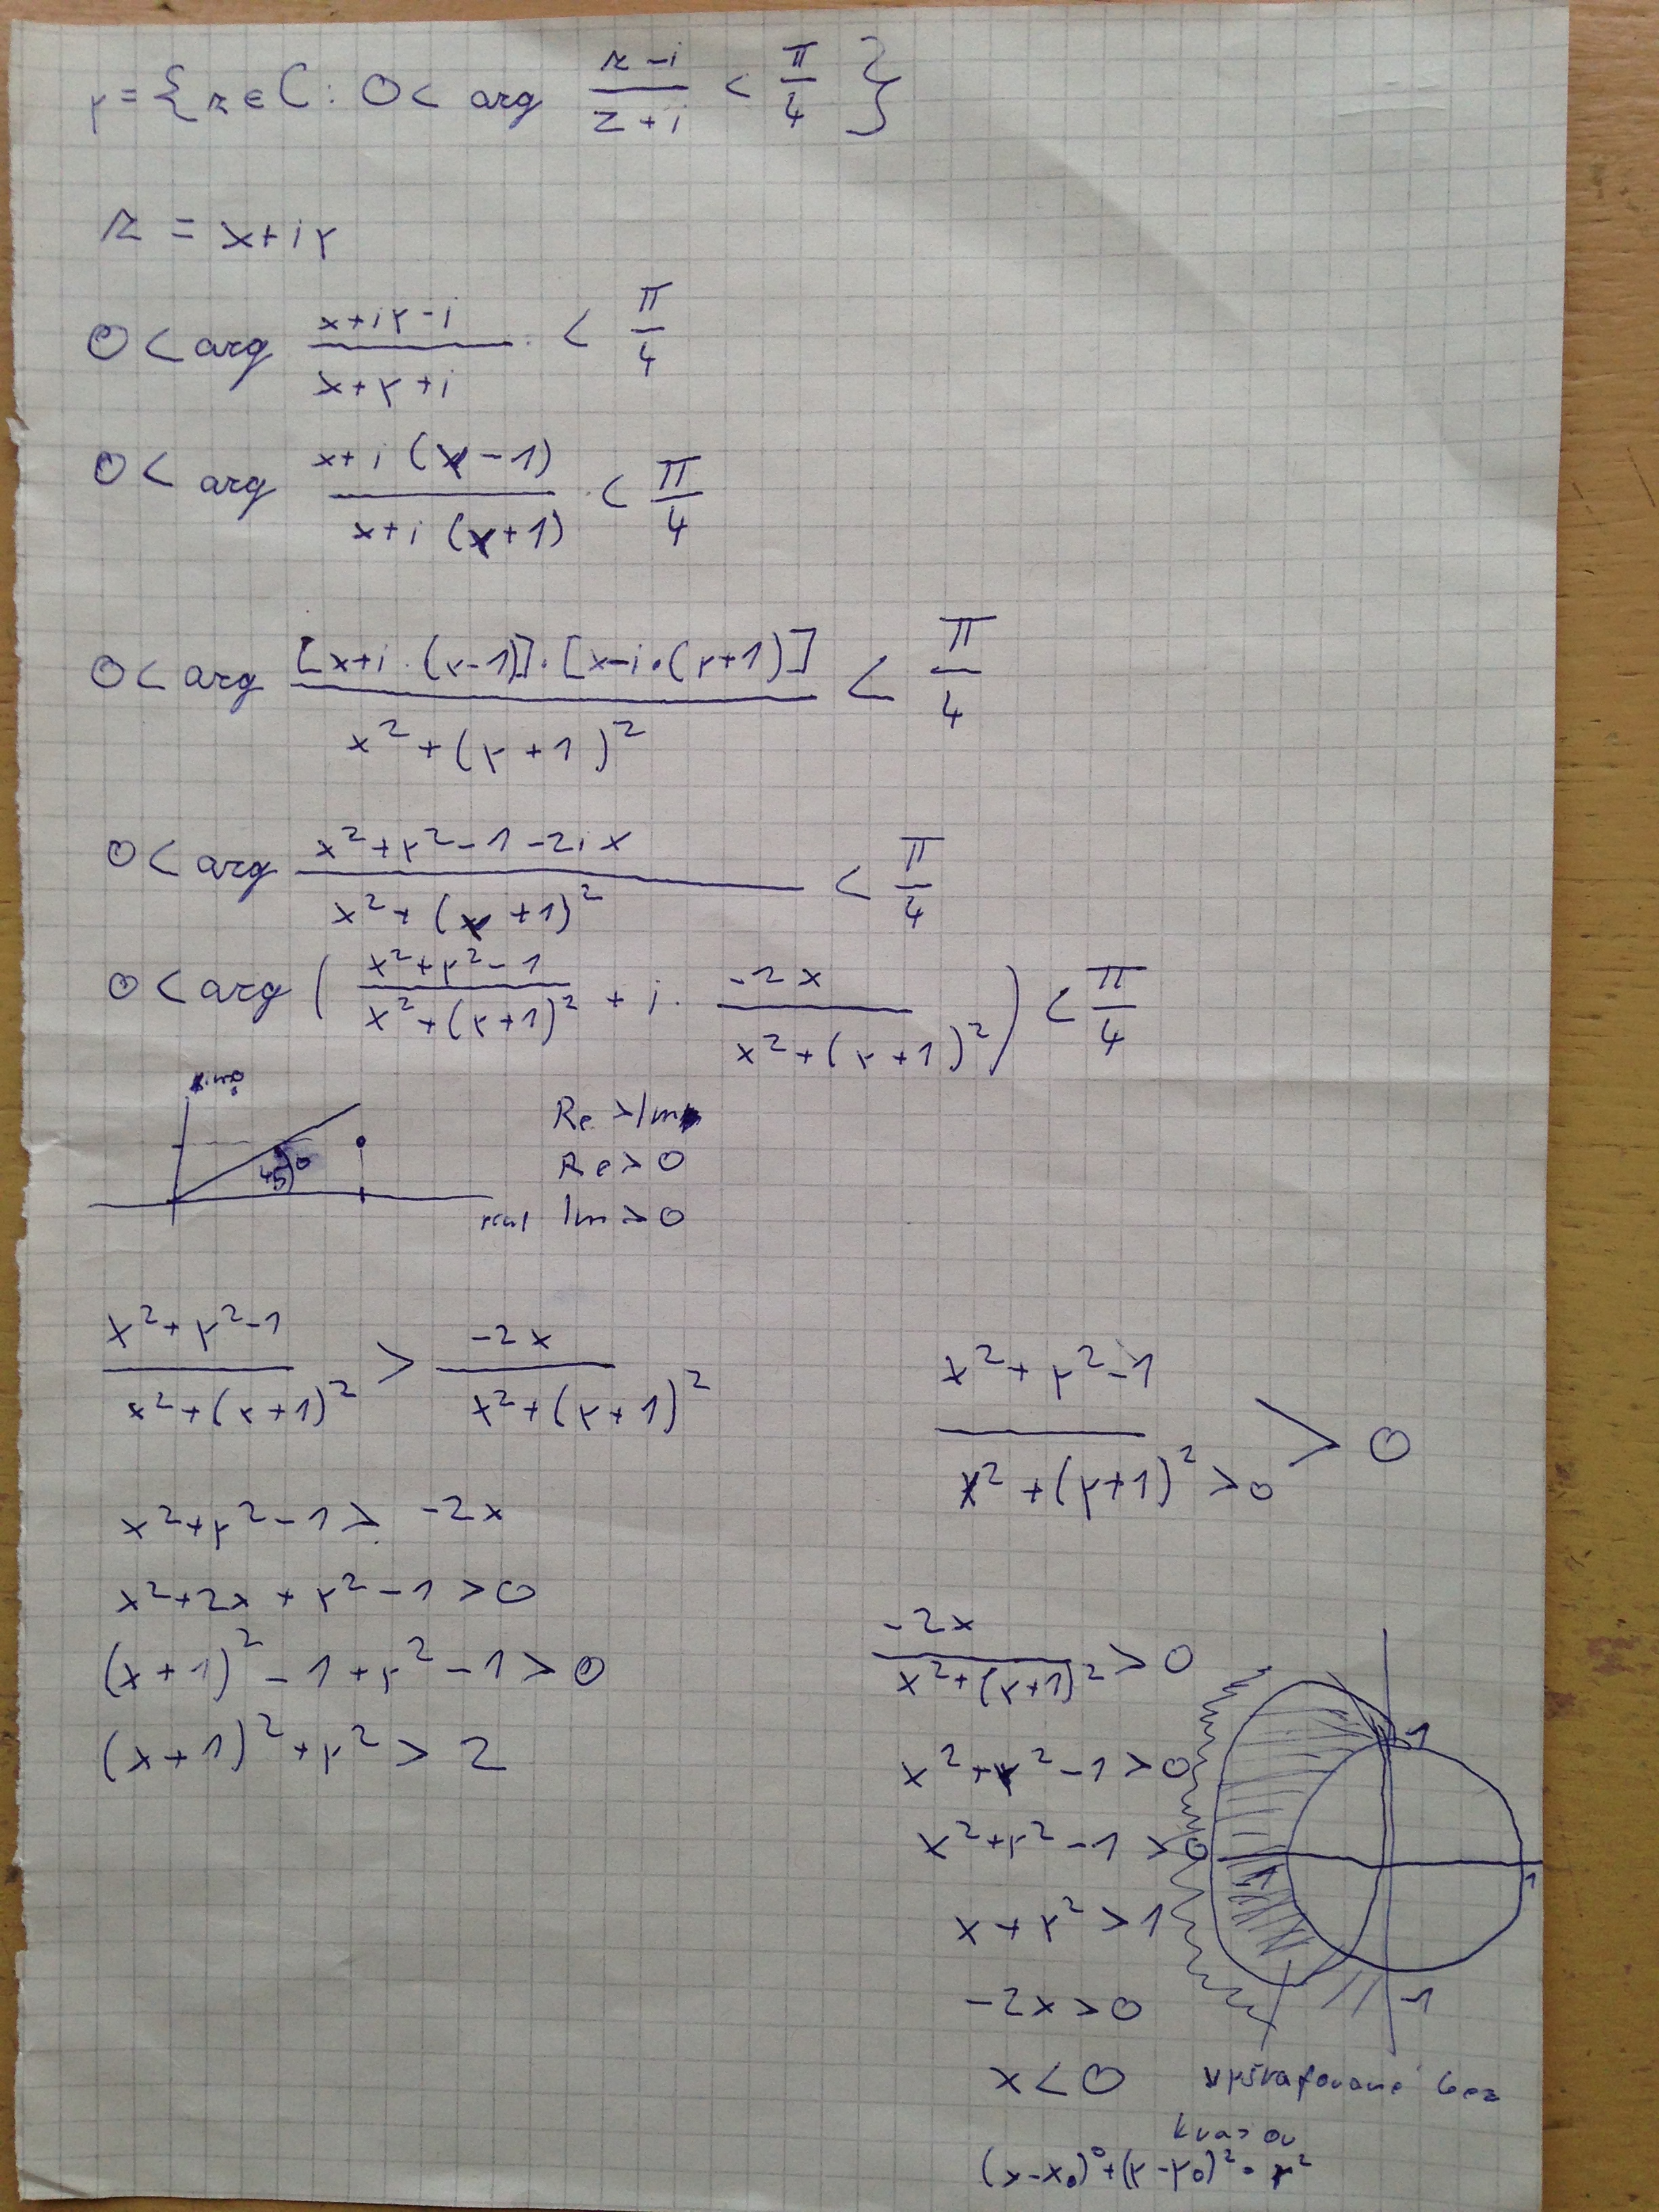 y = { z ∈ C : 0 < arg (z-i)/(z+i) < π/4 }
z = x+iy
0 < arg (x+iy-i)/(x+y+i) < π/4
0 < arg (x+i(y-1))/(x+i(y+1)) < π/4
0 < arg ([x+i·(y-1)]·[x-i·(y+1)])/(x²+(y+1)²) < π/4
0 < arg (x²+y²-1-2ix)/(x²+(y+1)²) < π/4
0 < arg ( (x²+y²-1)/(x²+(y+1)²) + i· (-2x)/(x²+(y+1)²) ) < π/4
45°
real
Re > Im
Re > 0
Im > 0
(x²+y²-1)/(x²+(y+1)²) > (-2x)/(x²+(y+1)²)
x²+y²-1 > -2x
x²+2x+y²-1 > 0
(x+1)²-1+y²-1 > 0
(x+1)²+y² > 2
(x²+y²-1)/(x²+(y+1)² > 0) > 0
(-2x)/(x²+(y+1)²) > 0
x²+y²-1 > 0
x²+y²-1 > 0
x+y² > 1
-2x > 0
x < 0
1
1
-1
vyšrafované bez
(x-x₀)²+(y-y₀)² = r²